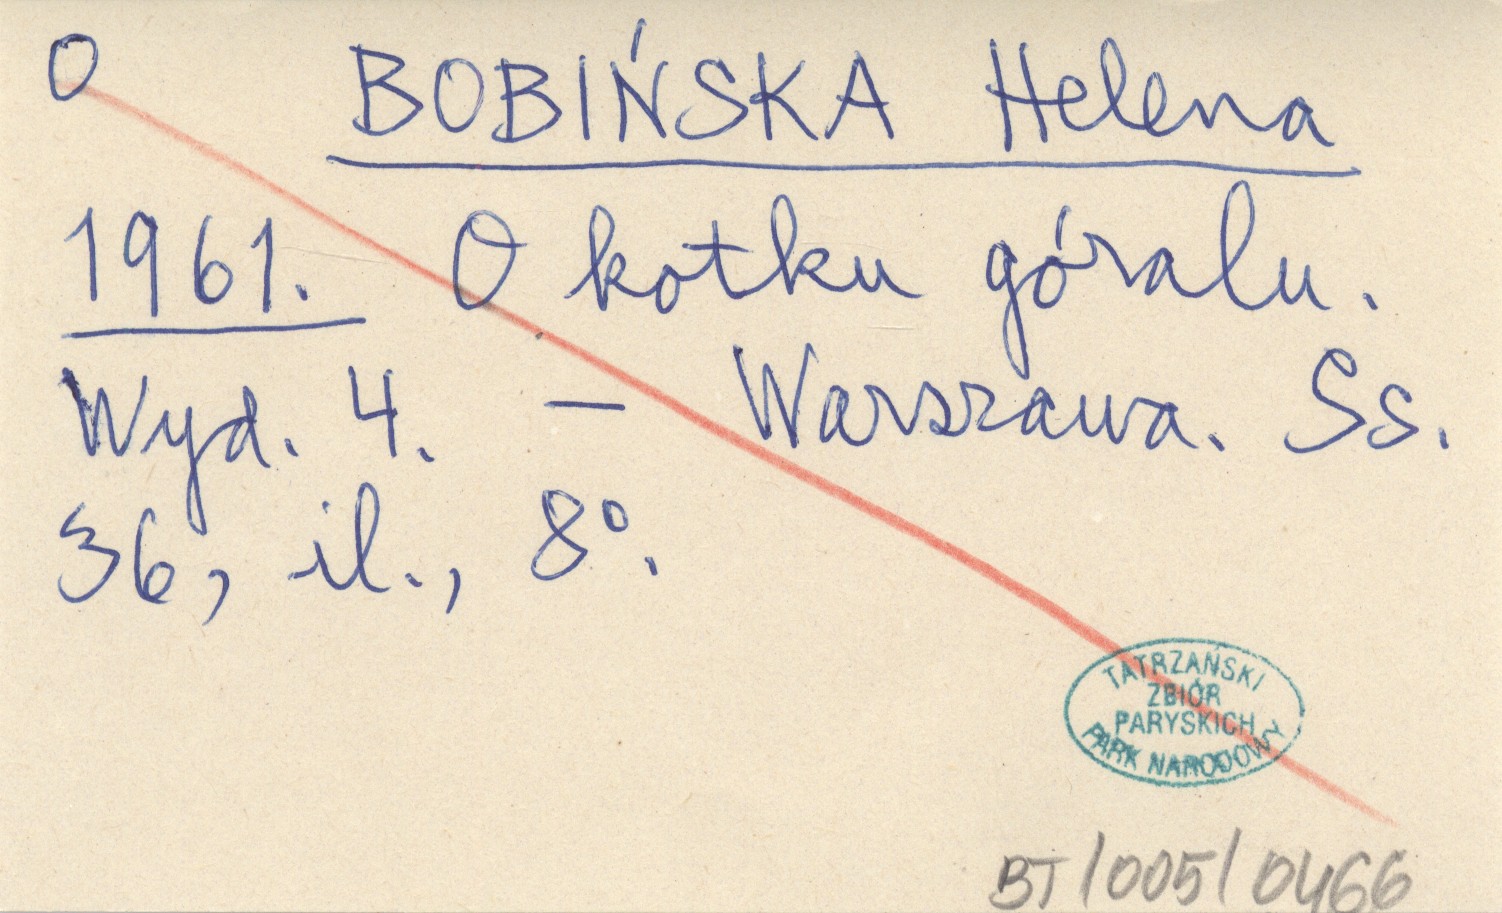 O BOBIŃSKA Helena
1961. O kotku góralu.
Wyd. 4. — Warszawa. Ss.
36, il., 8°.
TATRZAŃSKI
ZBIÓR
PARYSKICH
PARK NARODOWY
BT/005/0466